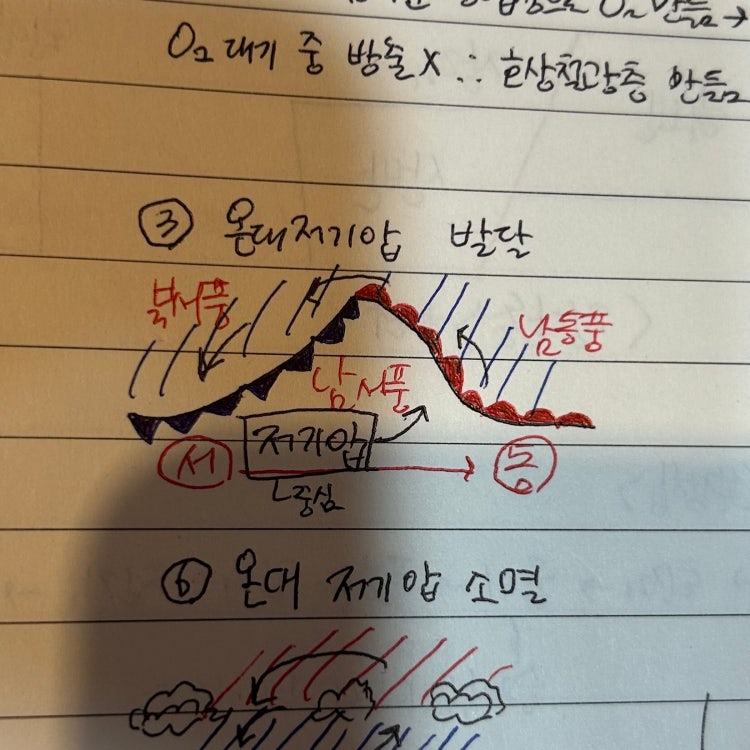 O₂ 만듦 →
O₂ 대기 중 방출 X ∴ 호상철광층 만듦
③ 온대저기압 발달
북서풍
남동풍
남서풍
저기압
서
동
ㄴ중심
⑥ 온대 저기압 소멸